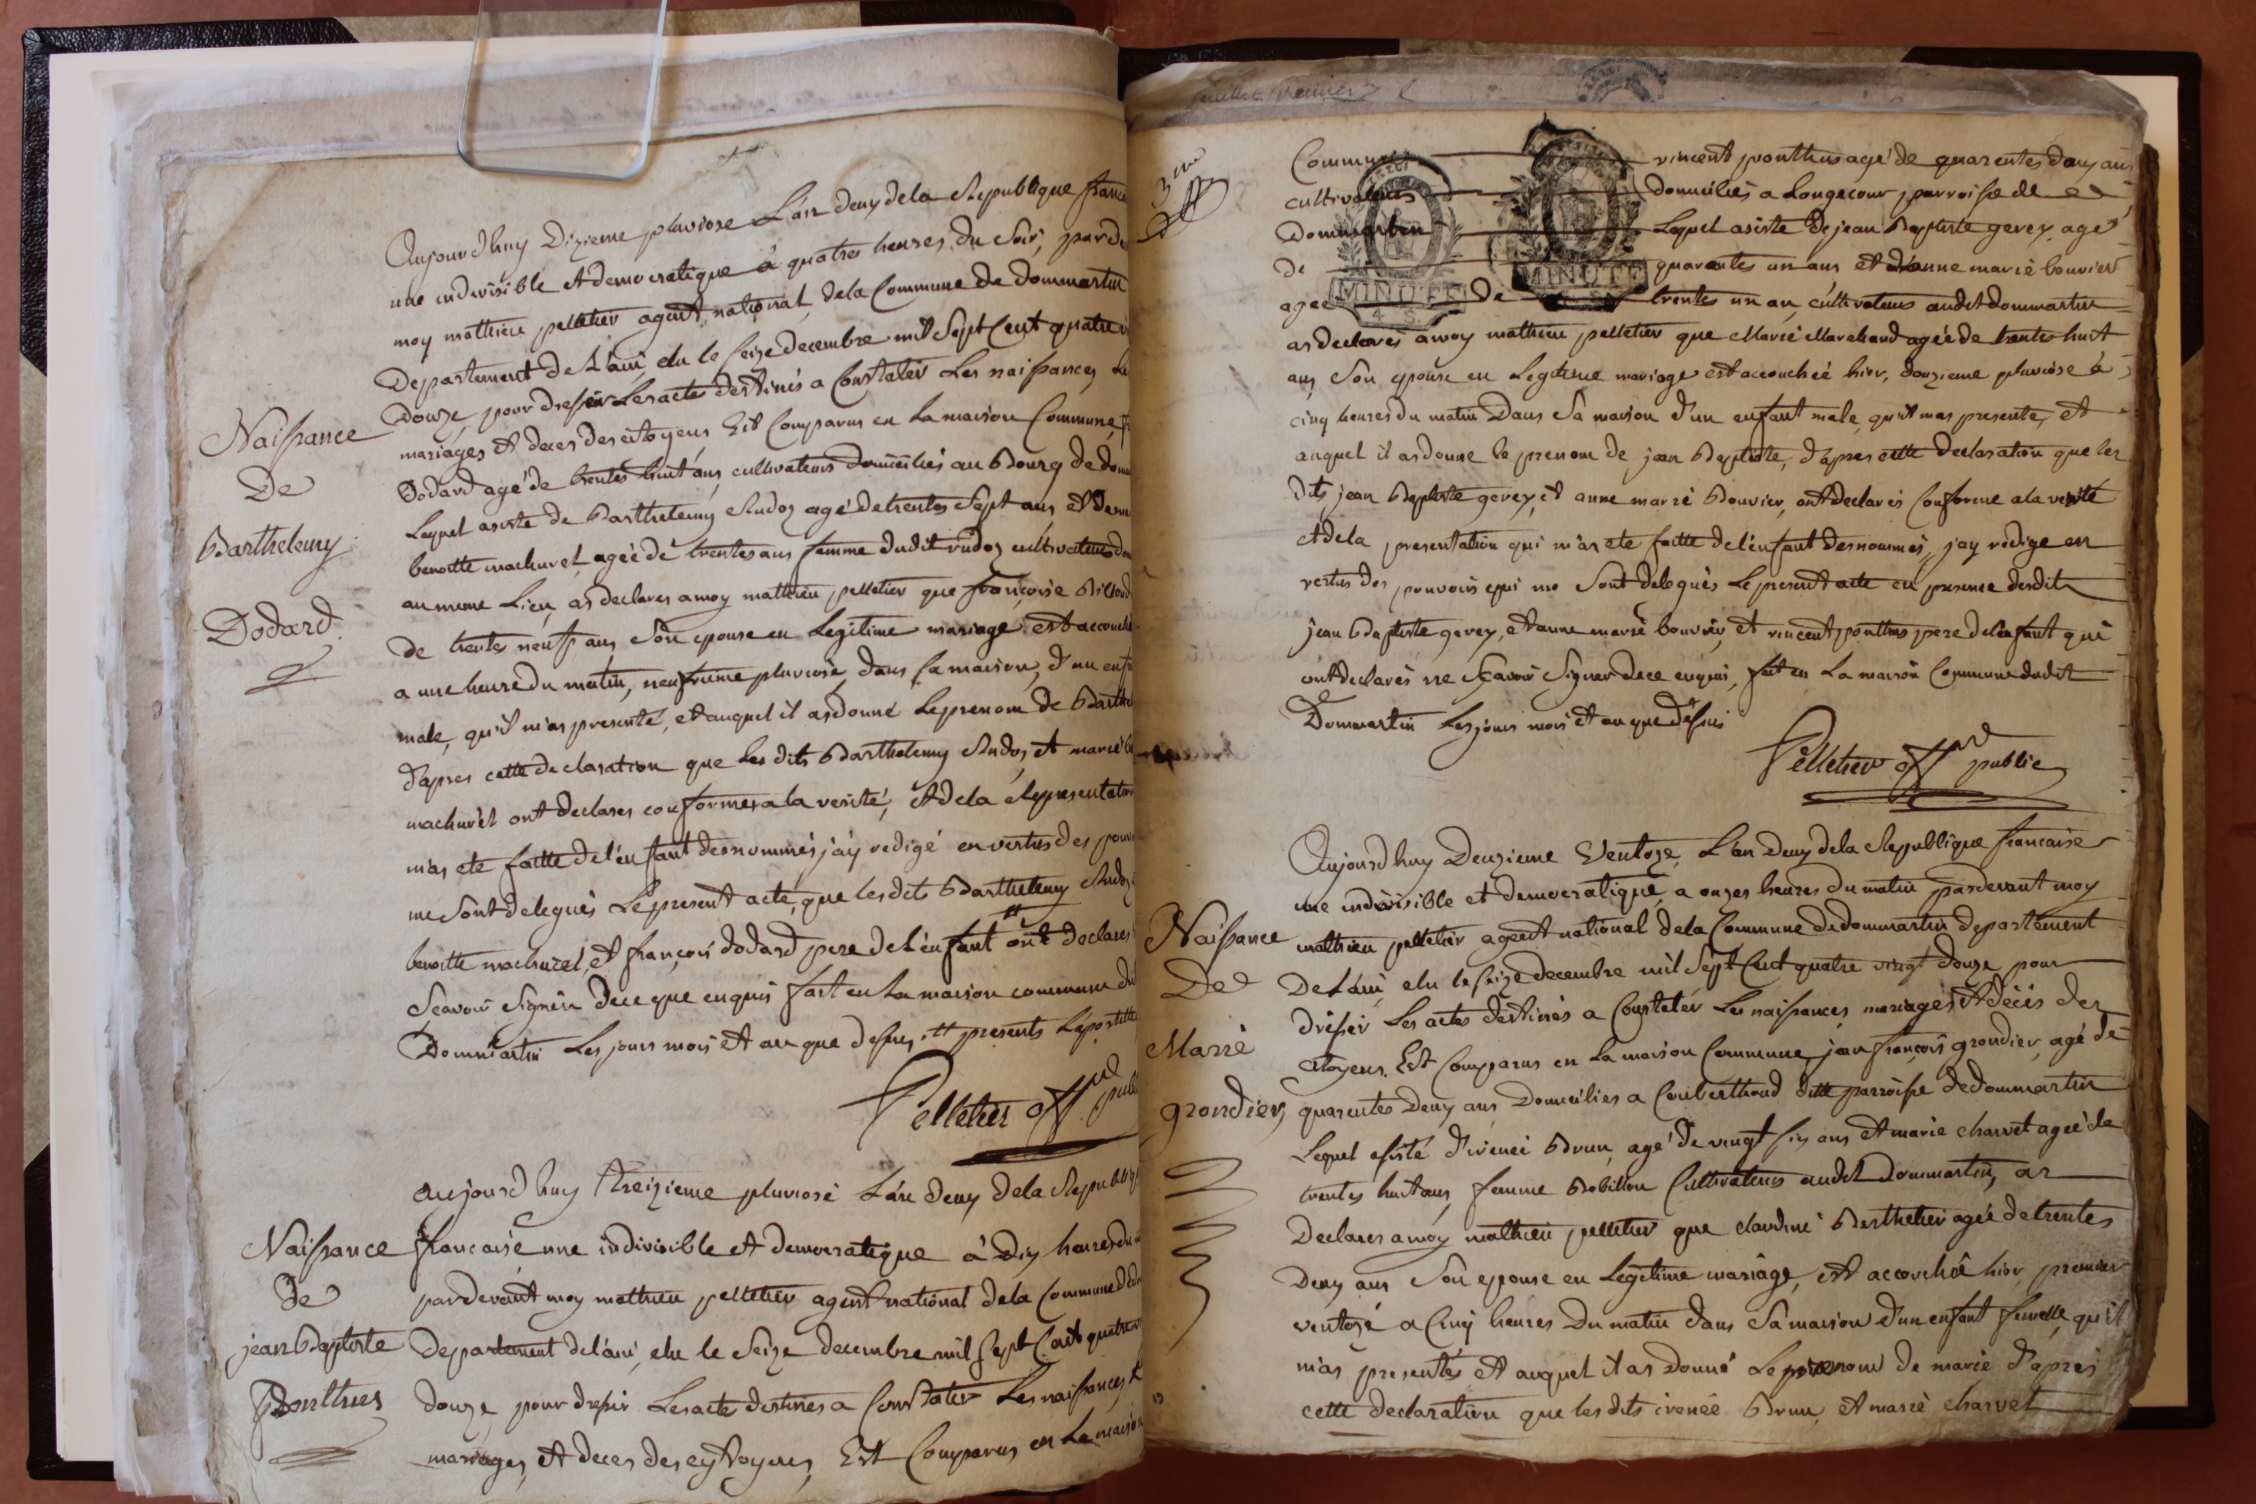 Aujourdhuy Dizieme pluviose L'an deux de la Republique france
une indivisible et democratique à quatres heures du soir, parde
moy mathieu pelletier agent national de la Commune de dommartin
Departement de L'ain elu le seize decembre mil sept Cent quatre v
Douze pour dresser Les actes destinés a Constater Les naissances
mariages et deces des citoyens Est Comparus en La maison Commune
Dodard agé de trentes huit ans cultivateurs domiciliés au Bourg de dom
Lequel asiste de Barthelemy Rudoz agé de trentes sept ans et de
benoitte machuret agée de trentes ans femme dudit rudoz cultivateurs
au meme Lieu, as declares a moy mathieu pelletier que francoise
de trentes neuf ans son epouse en Legitime mariage est accouché
a une heure du matin, neufvieme pluviose, dans sa maison, d'un enf
male, qu'il mas presenté, et auquel il as donné Le prenom de Barthe
d'apres cette declaration que Les dits Barthelemy Rudoz et marie
machuret ont declares conformes a la verité, et de la Representation
mas ete faitte de l'enfant denommés j'ay redigé en vertus des pouv
me sont delegués Le present acte, que les dits Barthelemy Rudoz
benoitte machuret, et françois dodard pere de L'enfant ont declares
Scavoir Signer de ce que enquis fait en La maison commune du
Dommartin Les jours mois et an que dessus # presents L'apostille
Pelletier off publ
Naissance
De
Barthelemy
Dodard
aujourdhuy treizieme pluviose L'an deux de la Republiq
francaise une indivisible et democratique à Dix heures du
pardevant moy mathieu pelletier agent national de la Commune de
Departement de l'ain, elu le Seize decembre mil sept Cent quatre v
douze pour dressir Les actes destinés a Constater Les naissances
mariages, et deces des cytoyens, Est Comparus en La maison
Naissance
De
jean Baptiste
Ponthus
feuillet premier
Commune vincent ponthus agé de quarentes deux ans
cultivateurs domiciliés a Longecour parroisse de
Dommartin Lequel asiste de jean Baptiste gerey agé
De quarentes un ans et d'anne marie bouvier
agee de trentes un an, cultivateurs audit dommartin
MINUTE
MINUTE
as declares a moy mathieu pelletier que Marie Marchand agée de trentes huit
ans, son epouse en Legitime mariage est accouchée hier, douzieme pluviose à
cinq heures du matin Dans sa maison d'un enfant male, qu'il mas presente, et
auquel il as donne le prenom de jean Baptiste, d'apres cette declaration que les
dits jean Baptiste gerey, et anne marie Bouvier, ont declarés Conforme a la verité
et de la presentation qui m'as ete faitte de l'enfant denommés, j'ay redige en
vertus des pouvoirs qui me sont delegués Le present acte en presence desdits
jean Baptiste gerey, et anne marie bouvier et vincent ponthus pere de l'enfant qui
ont declarés ne Sçavoir Signer de ce enquis, fait en La maison Commune dudit
Dommartin Les jours mois et an que Dessus
Pelletier off public
Aujourdhuy Deuzieme Ventoze, L'an Deux de la Republique francaise
une indivisible et democratique, a onzes heures du matin pardevant moy
mathieu pelletier agent national de la Commune de dommartin departement
De L'ain elu le seize decembre mil Sept Cent quatre vingt douze pour
dressir Les actes destinés a Constater Les naissances mariages et décés des
citoyens. Est Comparus en La maison Commune, jean françois grondier, agé de
quarentes Deux ans Domicilies a Couberthoud ditte parroisse de dommartin
Lequel asisté d'irenee Brun, agé de vingt six ans et marie charvet agée de
trentes huit ans, femme Robillon Cultivateurs audit Dommartin, as
Declares a moy mathieu pelletier que claudine Berthelier agée de trentes
Deux ans son epouse en Legitime mariage, est accouchée hier, premier
ventoze a Cinq heures Du matin dans Sa maison d'un enfant femelle, qu'il
m'as presentés et auquel il as Donné Le prenom de marie d'apres
cette declaration que les dits irenée Brun, et marie charvet
Naissance
De
Marie
grondier